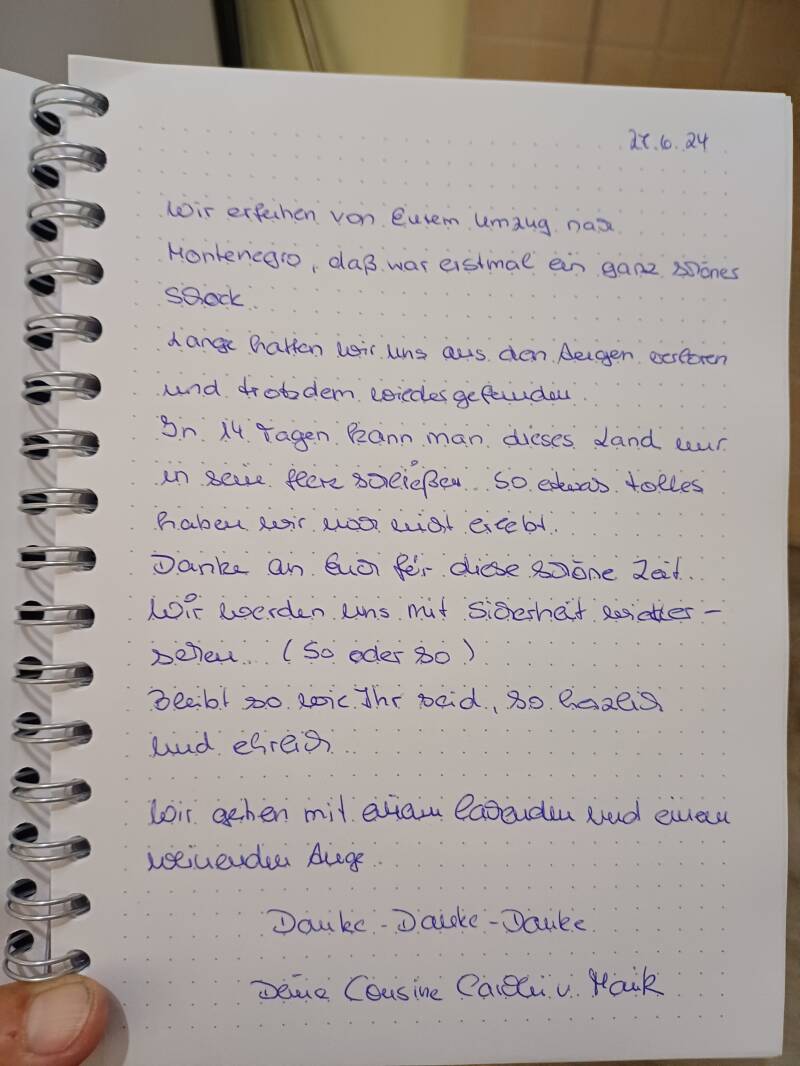 27.6.24
Wir erfuhren von Eurem Umzug nach
Montenegro, daß war erstmal ein ganz schönes
Schock.
Lange hatten wir uns aus den Augen verloren
und trotzdem wiedergefunden.
In 14 Tagen kann man dieses Land nur
in sein Herz schließen. So etwas tolles
haben wir noch nicht erlebt.
Danke an Euch für diese schöne Zeit.
Wir werden uns mit Sicherheit wieder-
sehen. (So oder so)
Bleibt so wie Ihr seid, so herzlich
und ehrlich
Wir gehen mit einem lachenden und einem
weinenden Auge.
Danke - Danke - Danke
Deine Cousine u. Maik